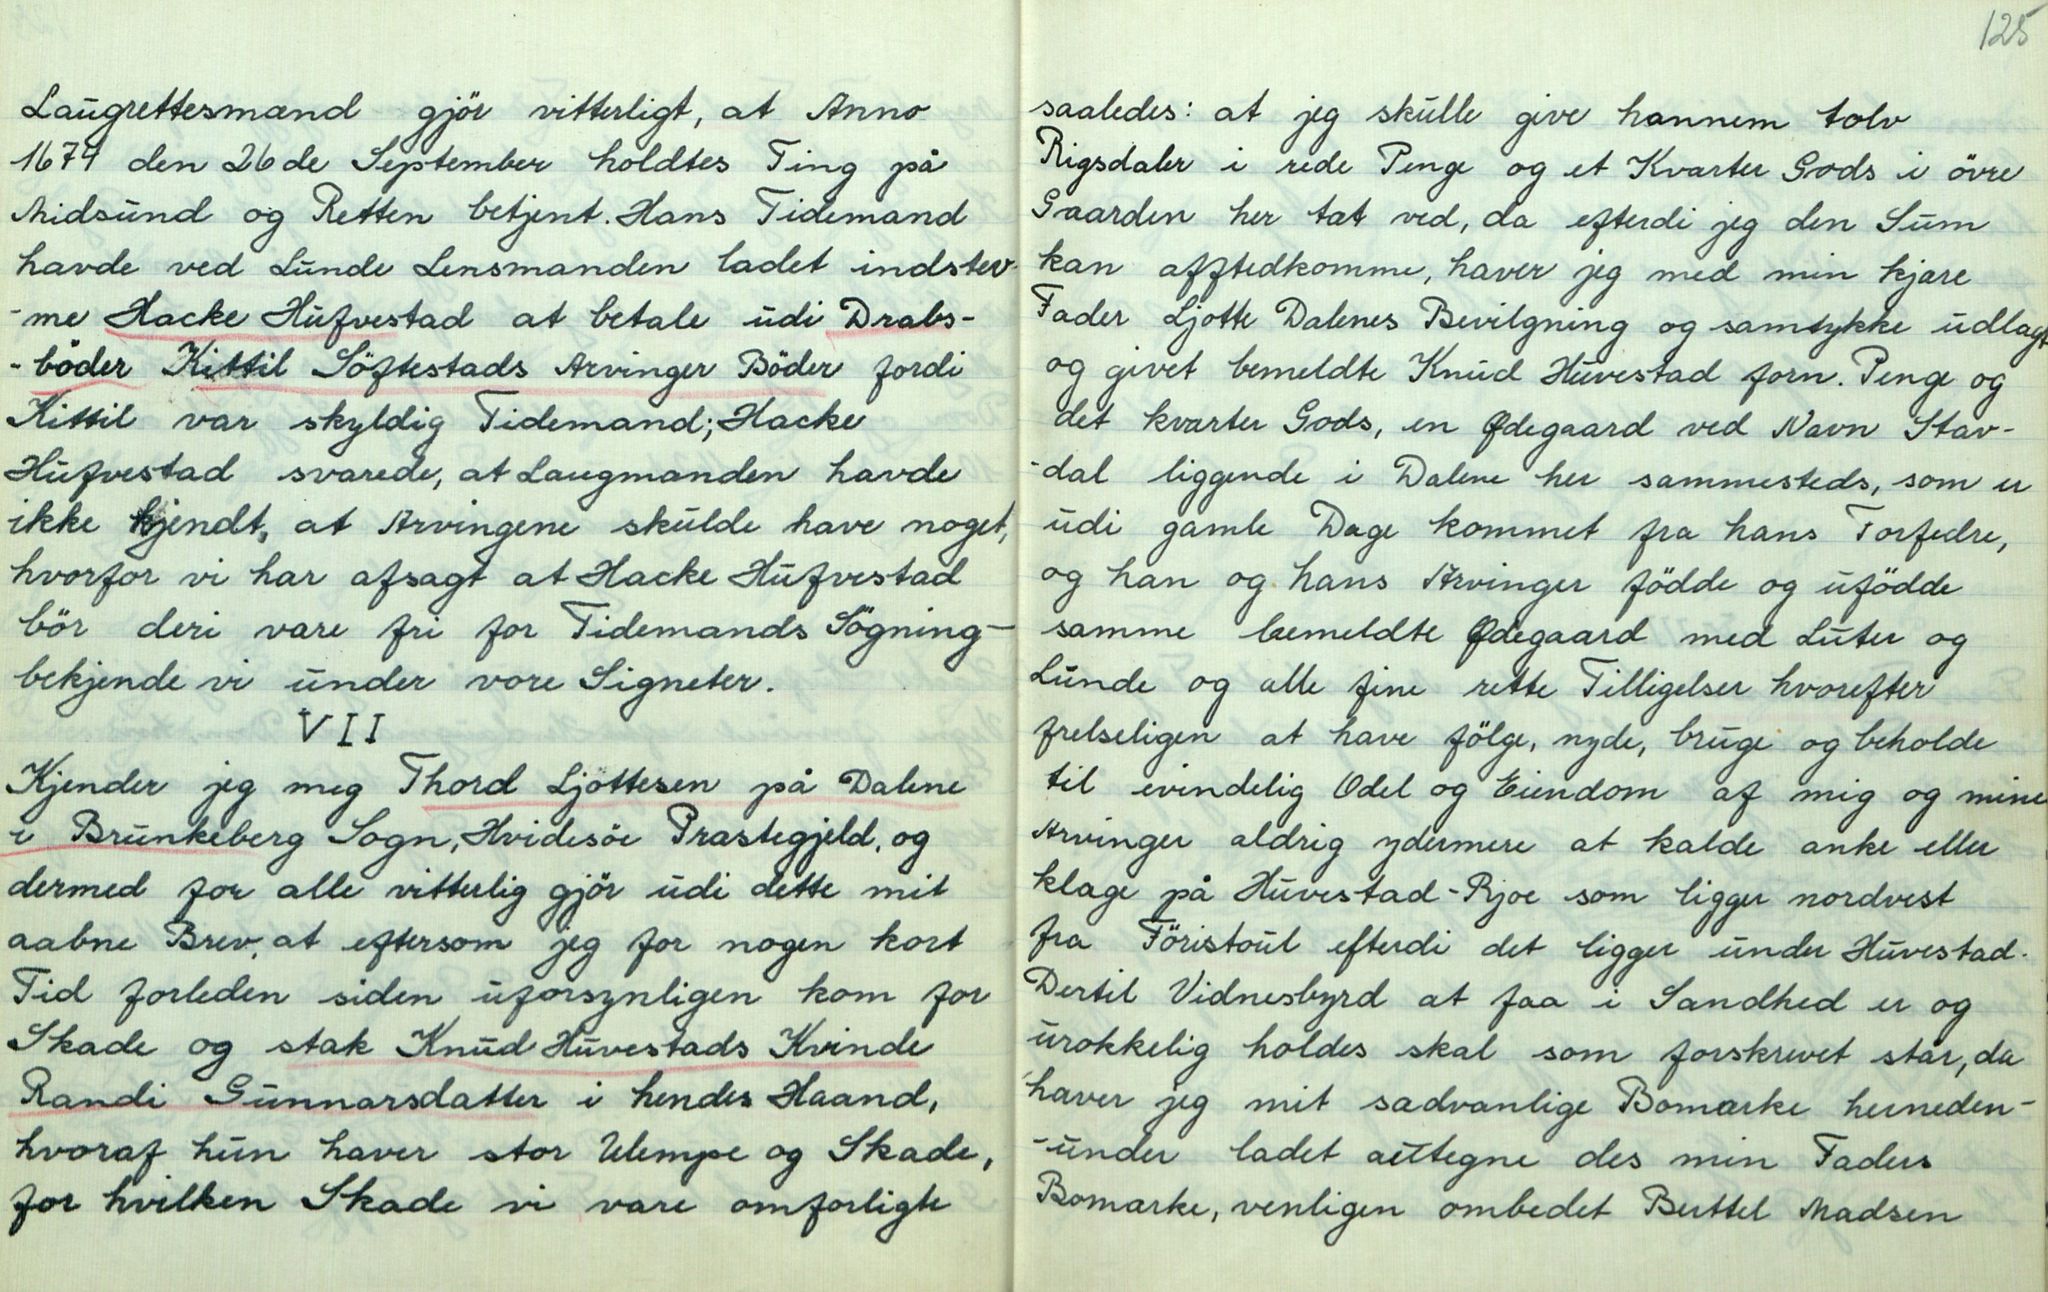 Laugrettesmænd gjör vitterligt, at Anno
1674 den 26de September holdtes Ting på
Midsund og Retten betjent. Hans Tidemand
havde ved Lunde Lensmanden ladet indstev-
-me Hacke Hufvestad at betale udi Drabs-
-böder Kittil Söftestads Arvinger Böder fordi
Kittil var skyldig Tidemand; Hacke
Hufvestad svarede, at Laugmanden havde
ikke kjendt, at Arvingene skulde have noget,
hvorfor vi har afsagt at Hacke Hufvestad
bör deri være fri for Tidemands Sögning-
bekjende vi under vore Signeter.
VII
Kjender jeg meg Thord Ljottesen på Dalene
i Brunkeberg Sogn, Hvidesöe Præstegjeld, og
dermed for alle vitterlig gjör udi dette mit
aabne Brev, at eftersom jeg for nogen kort
Tid forleden siden uforsynligen kom for
Skade og stak Knud Huvestads Kvinde
Randi Gunnarsdatter i hendes Haand,
hvoraf hun haver stor Ulempe og Skade,
for hvilken Skade vi vare omforligte
125
saaledes: at jeg skulle give hannem tolv
Rigsdaler i rede Penge og et Kvarter Gods i övre
Gaarden her tæt ved, da efterdi jeg den Sum
kan afstedkomme, haver jeg med min kjære
Fader Ljotte Dalenes Bevilgning og samtykke udlagt
og givet bemeldte Knud Huvestad forn. Penge og
det kvarter Gods, en Ødegaard ved Navn Stav-
-dal liggende i Dalene her sammesteds, som er
udi gamle Dage kommet fra hans Forfedre,
og han og hans Arvinger födde og ufödde
samme bemeldte Ødegaard med Luter og
Lunde og alle sine rette Tilligelser hvorefter
frelseligen at have fölge, nyde, bruge og beholde
til evindelig Odel og Eiendom af mig og mine
Arvinger aldrig ydermere at kalde anke eller
klage på Huvestad-Rjoe som ligger nordvest
fra Föristoul efterdi det ligger under Huvestad.
Dertil Vidnesbyrd at saa i Sandhed er og
urokkelig holdes skal som forskrevet står, da
haver jeg mit sædvanlige Bomærke herneden-
-under ladet aettegne des min Faders
Bomærke, venligen ombedet Berttel Madsen